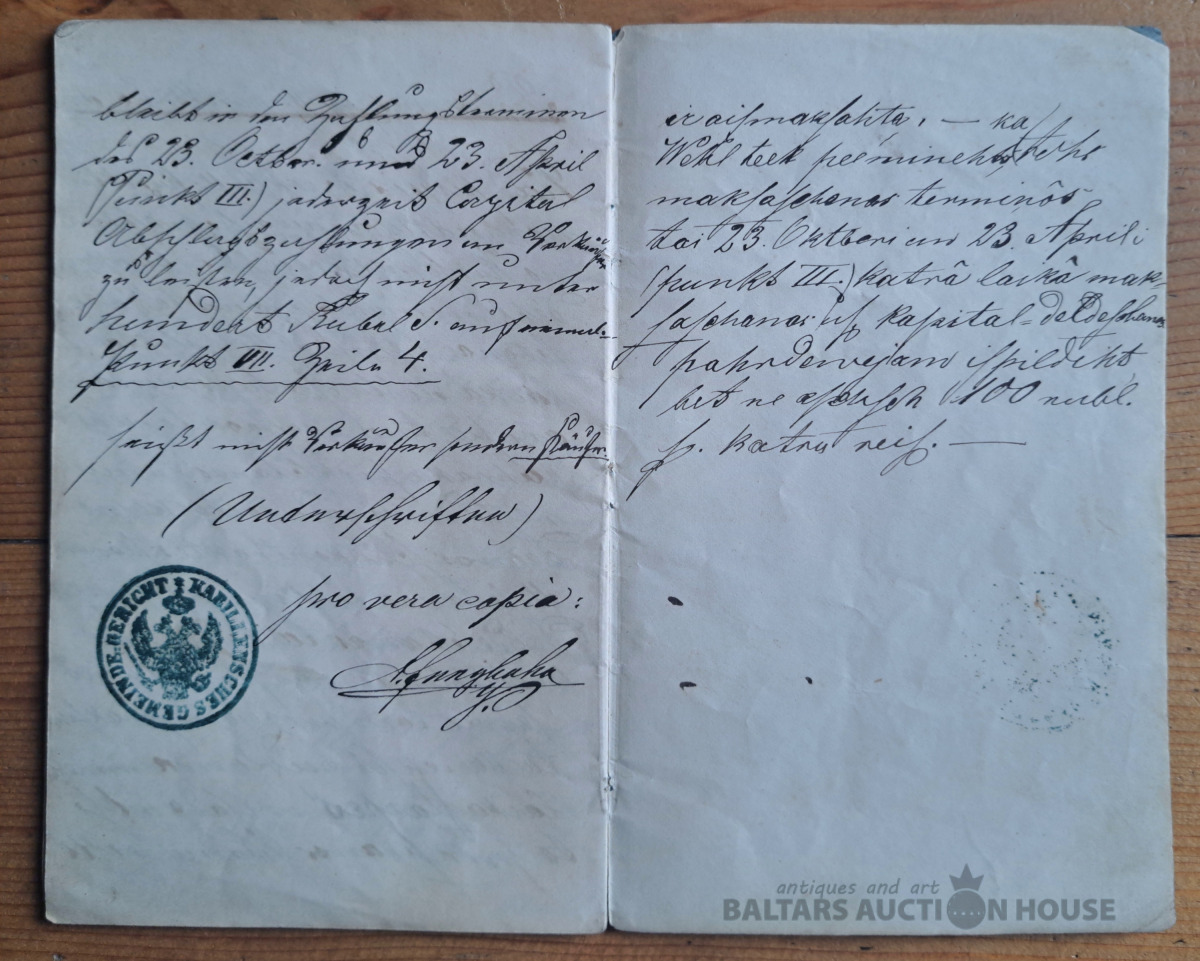 bleibt in den Zahlungsterminen
des 23. Octber. und 23. April
(Punkt III.) jederzeit Capital
Abschlagszahlungen an Verkäufer
zu leisten, jedoch nicht unter
hundert Rubel S. auf einmal.
Punkt VII. Zeile 4.
heißt nicht Verkäufer sondern Käufer.
(Unterschriften)
pro vera copia:
KABILLENSCHES GEMEINDE-GERICHT
ir aismaksahta, — kas
Wehl teek peeminehts
maksaschanas terminôs
tai 23. Oktberi un 23. Aprili
(punkt III.) katrâ laikâ mak-
saschanas us kapital-deldeschanas
pahrdewejam ispildiht,
bet ne apaksch 100 rubl.
s. katru reis. —
antiques and art
BALTARS AUCTION HOUSE